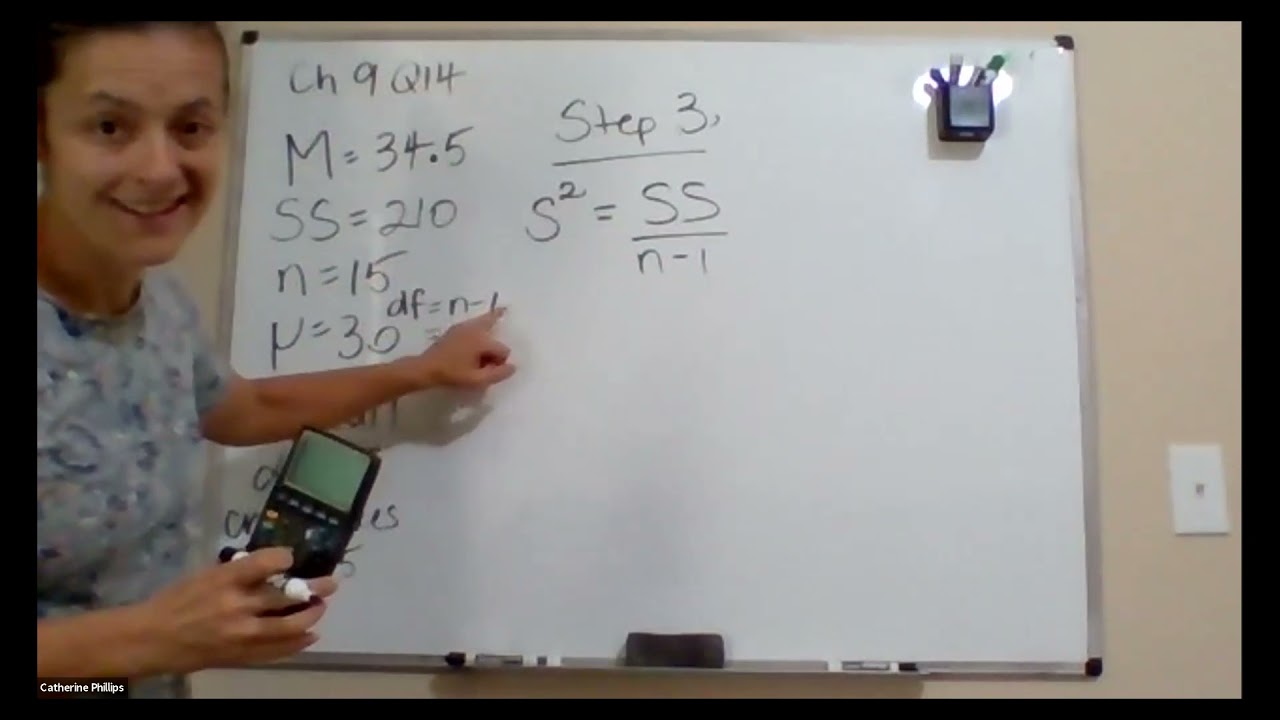 Ch 9 Q14
M = 34.5
SS = 210
n = 15
df = n-1
μ = 30 =
Step 3,
S² = SS
n-1
Catherine Phillips